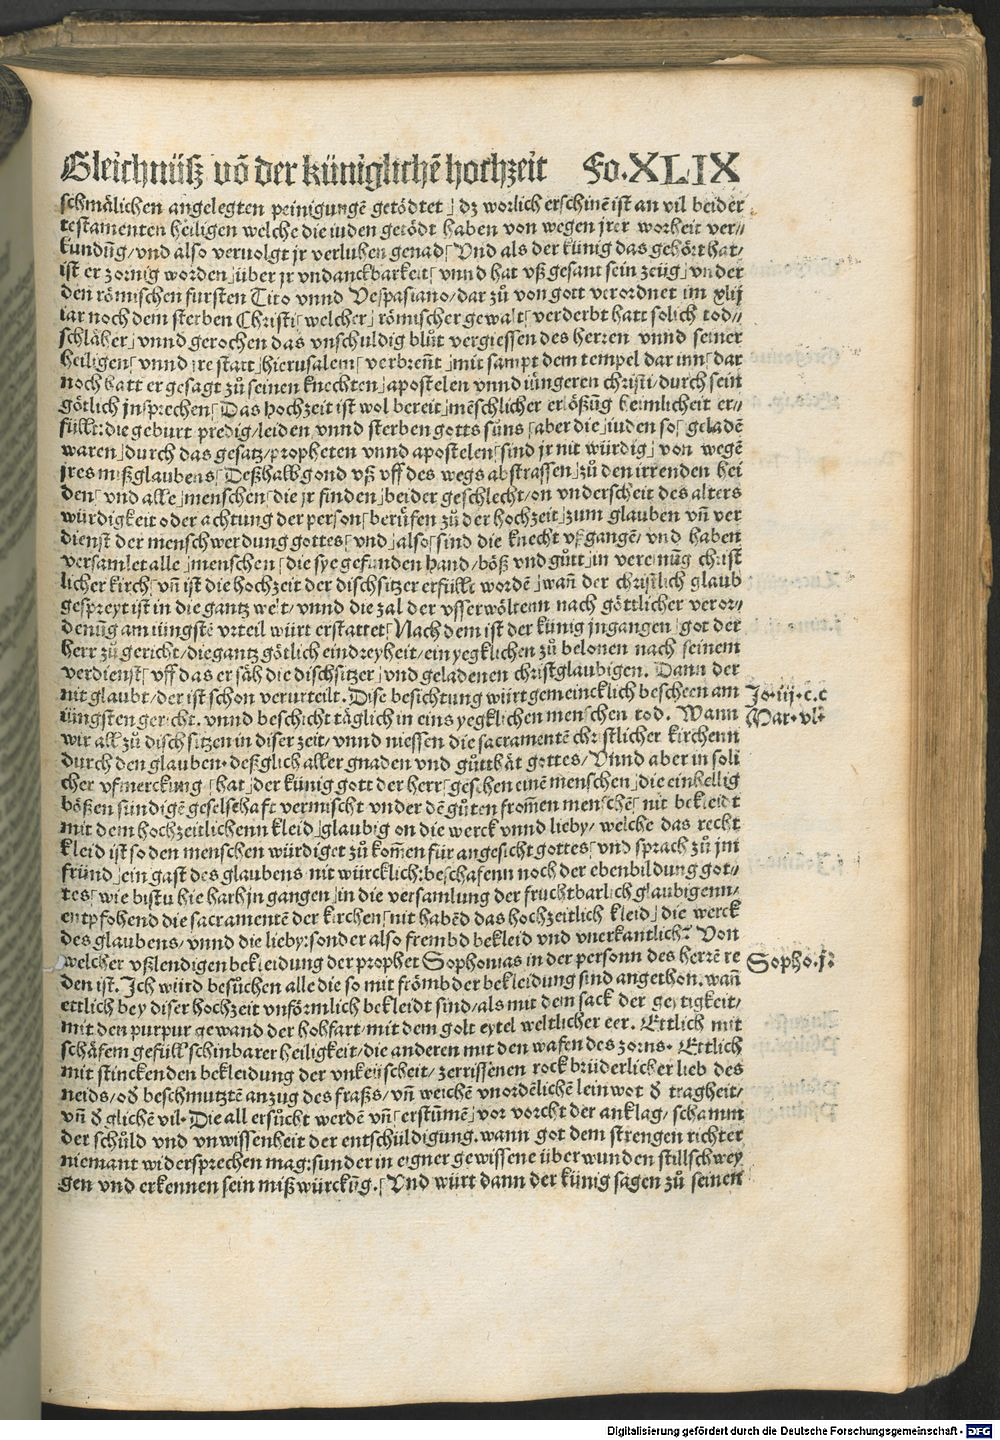 Gleichnüß vō der küniglichē hochzeit Fo. XLIX
schmälichen angelegten peinigungē getödtet⌋ dz worlich erschinē ist an vil beider
testamenten heiligen welche die iuden getödt haben von wegen jrer worheit ver//
kundūg/ vnd also veruolgt jr verluhen genad⌈ Vnd als der künig das gehört hat/
ist er zornig worden⌋ über jr vndanckbarkeit⌈ vnnd hat vß gesant sein zeüg⌋ vnder
den römischen fursten Tito vnnd Vespasiano/ dar zů von gott verordnet im xlij
iar noch dem sterben Christi⌈ welcher⌋ römischer gewalt⌈ verderbt hatt solich tod//
schläher⌋ vnnd gerochen das vnschuldig blůt vergiessen des herren vnnd seiner
heiligen⌈ vnnd ire statt⌋ hierusalem⌈ verbreñt⌋ mit sampt dem tempel dar inn⌈ dar
noch hatt er gesagt zů seinen knechten⌋ apostelen vnnd iüngeren christi/ durch sein
götlich jnsprechen⌈ Das hochzeit ist wol bereit⌋ mēschlicher erlößūg heimlicheit er//
füllt: die geburt predig/ leiden vnnd sterben gotts suns⌈ aber die⌋ iuden so⌈ geladē
waren⌋ durch das gesatz/ propheten vnnd apostelen⌈ sind jr nit würdig⌋ von wegē
jres mißglaubens⌈ Deßhalb gond vß vff des wegs abstrassen⌋ zů den irrenden hei
den⌈ vnd alle⌋ menschen⌈ die jr finden⌋ beider geschlecht/ on vnderscheit des alters
würdigkeit oder achtung der person⌈ berůfen zů der hochzeit⌋ zum glauben vñ ver
dienst der menschwerdung gottes⌈ vnd⌋ also⌈ sind die knecht vßgangē/ vnd haben
versamlet alle⌋ menschen⌈ die sye gefunden hand/ böß vnd gůt⌋ in vereinūg christ
licher kirch⌈ vñ ist die hochzeit der dischsitzer erfüllt wordē⌋ wañ der christlich glaub
gespreyt ist in die gantz welt/ vnnd die zal der vsserwöltenn nach göttlicher veror//
denūg am iüngstē vrteil würt erstattet⌈ Nach dem ist der künig jngangen⌋ got der
herr zů gericht/ die gantz götlich eindreyheit/ ein yegklichen zů belonen nach seinem
verdienst⌈ vff das er säh die dischsitzer⌋ vnd geladenen christglaubigen. Dann der
nit glaubt/ der ist schon verurteilt. Dise besichtung würt gemeincklich bescheen am Jo. iij. c. c
iüngsten gericht. vnnd beschicht täglich in eins yegklichen menschen tod. Wann Mar. vlt
wir all zů disch sitzen in diser zeit/ vnnd niessen die sacramentē christlicher kirchenn
durch den glauben. deßglich aller gnaden vnd gůtthāt gottes/ Vnnd aber in soli
cher vfmerckung⌈ hat⌋ der künig gott der herr⌈ gesehen einē menschen⌋ die einhellig
bößen sündigē geselschaft vermischt vnder dē gůten from̄en menschē⌈ nit bekleidt
mit dem hochzeitlichenn kleid⌋ glaubig on die werck vnnd lieby/ welche das recht
kleid ist so den menschen würdiget zů kom̄en für angesicht gottes⌈ vnd sprach zů jm
fründ⌋ ein gast des glaubens nit würcklich: beschafenn noch der ebenbildung got//
tes⌈ wie bistu hie harhin gangen⌋ in die versamlung der fruchtbarlich glaubigenn/
entpfohend die sacramentē der kirchen⌈ nit habēd das hochzeitlich kleid⌋ die werck
des glaubens/ vnnd die lieby: sonder also frembd bekleid vnd vnerkantlich? Von
welcher vßlendigen bekleidung der prophet Sophonias in der personn des herrē re Sopho. j.
den ist. Ich würd besůchen alle die so mit frömbder bekleidung sind angethon. wañ
ettlich bey diser hochzeit vnförmlich bekleidt sind/ als mit dem sack der geytigkeit/
mit den purpur gewand der hohfart/ mit dem golt eytel weltlicher eer. Ettlich mit
schäfem gefüll schinbarer heiligkeit/ die anderen mit den wafen des zorns. Ettlich
mit stinckenden bekleidung der vnkeüscheit/ zerrissenen rock brüderlicher lieb des
neids/ oð beschmutztē anzug des fraßs/ vñ weichē vnordēlichē leinwot ð tragheit/
vñ ð glichē vil. Die all ersůcht werdē vñ⌈ erstūmē⌋ vor vorcht der anklag/ schamm
der schuld vnd vnwissenheit der entschüldigung. wann got dem strengen richter
niemant widersprechen mag: sunder in eigner gewissene überwunden stillschwey
gen vnd erkennen sein mißwürckūg.⌈ Vnd würt dann der künig sagen zů seinen
Digitalisierung gefördert durch die Deutsche Forschungsgemeinschaft - DFG